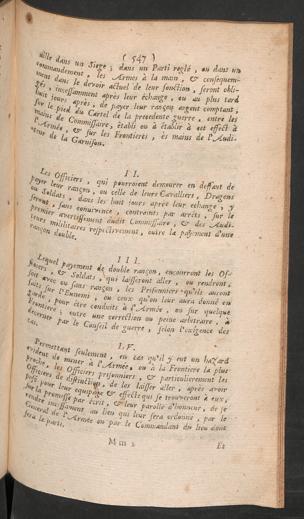 ( 547 )
dille dans un Siege ; dans un Parti reglé, ou dans un
commandement, les Armes à la main, & consequem-
ment dans le devoir actuel de leur fonction, seront obli-
gés, incessamment après leur échange, ou au plus tard
huit jours après, de payer leur rançon argent comptant,
sur le pied du Cartel de la precedente guerre, entre les
mains de Commissaire, établi ou à établir à cet effect à
l'Armée, & sur les Frontieres, és mains de l'Audi-
teur de la Garnison.
I I.
Les Officiers, qui pourroient demeurer en deffaut de
payer leur rançon, ou celle de leurs Cavalliers, Dragons
ou Soldats, dans les huit jours après leur echange, y
seront, sans connivence, contraints par arrêts, sur le
premier avertissement dudit Commissaire, & des Audi-
teurs militaires respectivement, outre la payement d'une
rançon double.
I I I.
Lequel payement de double rançon, encourront les Of-
ficiers, & Soldats, qui laisseront aller, ou rendront,
soit avec ou sans rançon, les Prisonniers qu'ils auront
faits sur l'Ennemi, ou ceux qu'on leur aura donné en
garde, pour être conduits à l'Armée, ou sur quelque
Frontiere ; outre une correction ou peine arbitraire, à
decerner par le Conseil de guerre, selon l'exigence des
cas.
I V.
Permettant seulement, en cas qu'il y eut un hazard
evident de mener à l'Armée, ou à la Frontiere la plus
proche, les Officiers prisonniers, & particulierement les
Officiers de distinction, de les laisser aller, après avoir
pris pour leur equipage & effects qui se trouveront à eux,
la promesse par écrit, & leur parolle d'honneur, de se
rendre incessamment au lieu qui leur sera ordonné, par le
General de l'Armée ou par le Commandant du lieu dont
sera le parti.
M m 2
Et